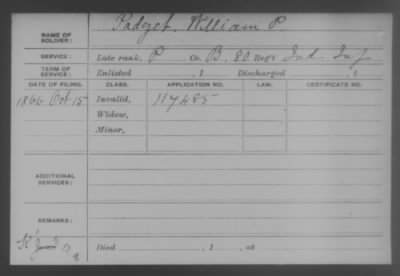 NAME OF SOLDIER: Padget, William P.
SERVICE: Late rank, P Co. B. 80 Reg't Ind Inf
TERM OF SERVICE: Enlisted , 1 Discharged , 1
DATE OF FILING. CLASS. APPLICATION NO. LAW. CERTIFICATE NO.
1866 Oct 15 Invalid, 117485
Widow,
Minor,
ADDITIONAL SERVICES:
REMARKS:
Died , 1 , at